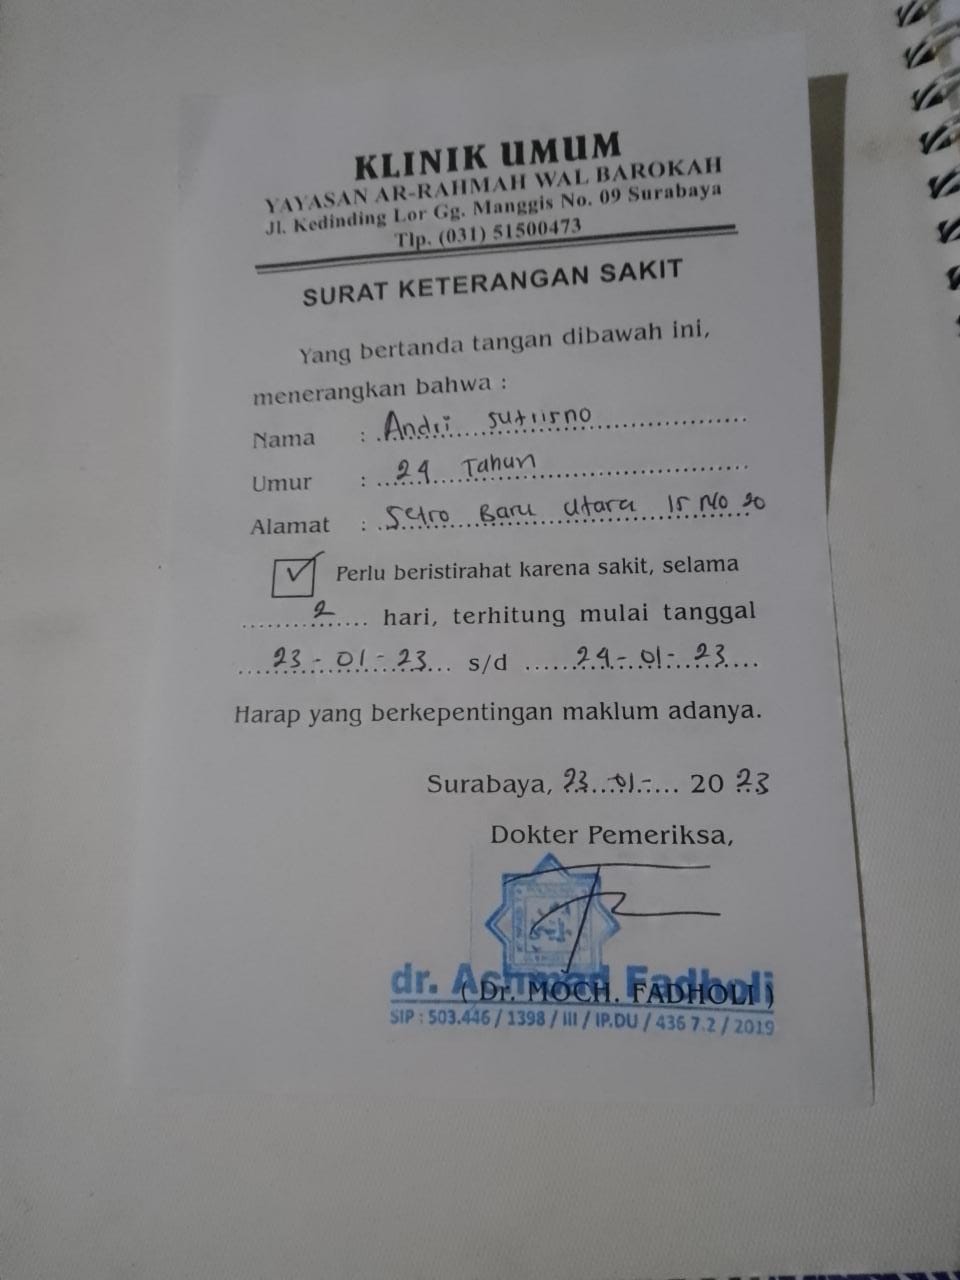 KLINIK UMUM
YAYASAN AR-RAHMAH WAL BAROKAH
Jl. Kedinding Lor Gg. Manggis No. 09 Surabaya
Tlp. (031) 51500473
SURAT KETERANGAN SAKIT
Yang bertanda tangan dibawah ini,
menerangkan bahwa :
Nama : Andri sutrisno
Umur : 24 Tahun
Alamat : Setro Baru Utara 15 No 20
Perlu beristirahat karena sakit, selama
2 hari, terhitung mulai tanggal
23-01-23 s/d 24-01-23
Harap yang berkepentingan maklum adanya.
Surabaya, 23-01- 2023
Dokter Pemeriksa,
dr. Achmad Fadholi
( Dr. MOCH. FADHOLI )
SIP : 503.446 / 1398 / III / IP.DU / 436 7.2 / 2019